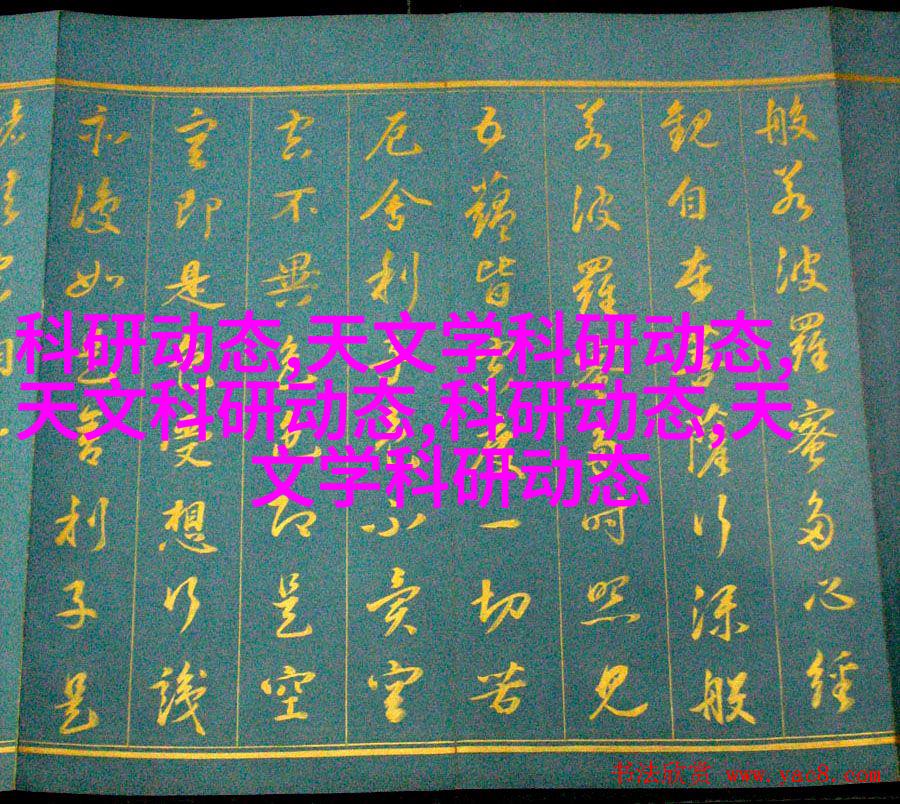 般若波羅蜜多心經
觀自在菩薩行深般
若波羅蜜多時照見
五蘊皆空度一切苦
厄舍利子色不異空
空不異色色即是空
空即是色受想行識
亦復如是舍利子是
科研动态,天文学科研动态,
天文科研动态,科研动态,天
文学科研动态
书法欣赏 www.yac8.com